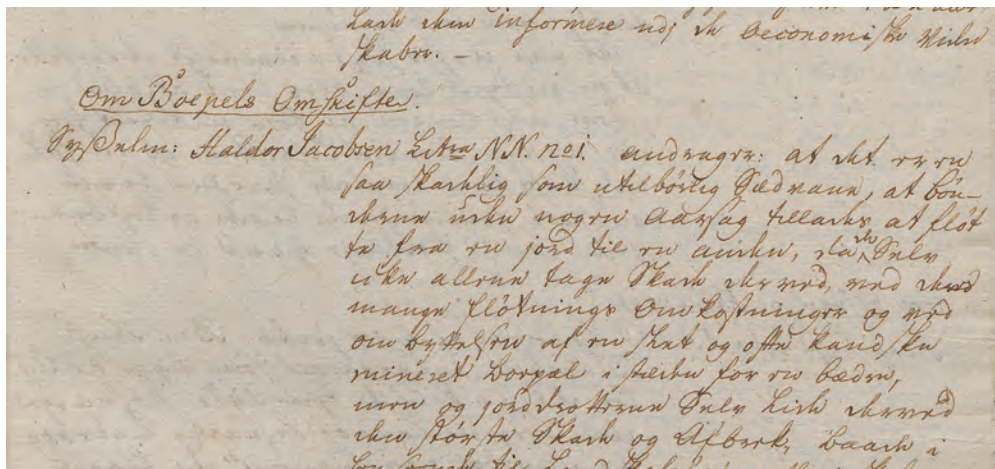 lade dem informere udj de Oeconomiske Viden
skaber. –
Om Bøepels Omskifte.
Sysselm: Haldor Jacobsen Litra NN. no 1. andrager: at det er en
saa skadelig som utilbörlig Sædvane, at bön-
derne uden nogen Aarsag tillades at flöt
te fra en jord til en anden, da de Selv
icke allene tage Skade derved, ved deres
mange flötnings Omkostninger og ved
ombyttelsen af en slet og ofte kandske
mineret boepæl i stæden for en bædre,
men og jorddrotterne Selv lide derved
den störste Skade og Afbrek, baade i